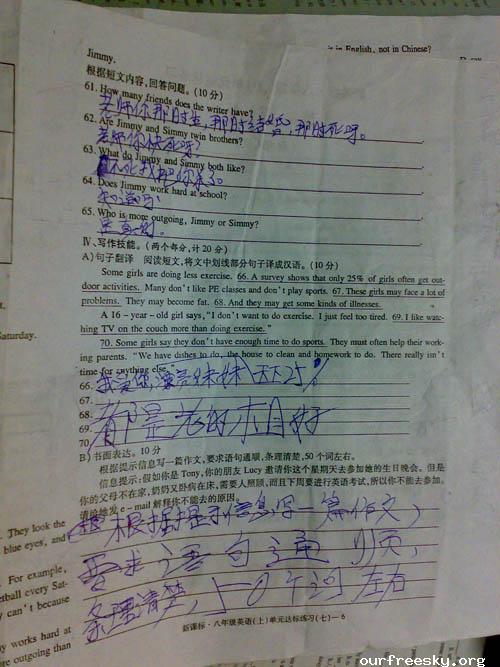 it is in English, not in Chinese?
Jimmy.
根据短文内容,回答问题。(10分)
61. How many friends does the writer have?
老师你那时生,那时结婚,那时死呀。
62. Are Jimmy and Simmy twin brothers?
老师你快死呀?
63. What do Jimmy and Simmy both like?
不死我把你杀了
64. Does Jimmy work hard at school?
知道吗
65. Who is more outgoing, Jimmy or Simmy?
Ⅳ. 写作技能。(两个部分,计20分)
A)句子翻译 阅读短文,将文中划线部分句子译成汉语。(10分)
Some girls are doing less exercise. 66. A survey shows that only 25% of girls often get out-
door activities. Many don't like PE classes and don't play sports. 67. These girls may face a lot of
problems. They may become fat. 68. And they may get some kinds of illnesses.
A 16-year-old girl says, "I don't want to do exercise. I just feel too tired. 69. I like watc-
hing TV on the couch more than doing exercise."
70. Some girls say they don't have enough time to do sports. They must often help their work-
ing parents. "We have dishes to do, the house to clean and homework to do. There really isn't
time for anything else."
66. 我爱你 妹妹 25%
67.
68. 都是老的 好
69.
70
B)书面表达。10分
根据提示信息写一篇作文,要求语句通顺,条理清楚,50个词左右。
提示信息:假如你是Tony,你的朋友Lucy邀请你这个星期天去参加她的生日晚会。但是
你的父母不在家,奶奶又卧病在床,需要人照顾,而且下周要进行英语考试,所以你不能去参加。
请给她发e-mail解释你不能去的原因。
根据提示信息写一篇作文,
要求语句通顺,
条理清楚,50个词左右
新课标·八年级英语(上)单元达标练习(七)—6
Saturday.
. They look the
blue eyes, and
. For example,
tball every Sat-
y can't because
y works hard at
re outgoing than
ourfreesky.org